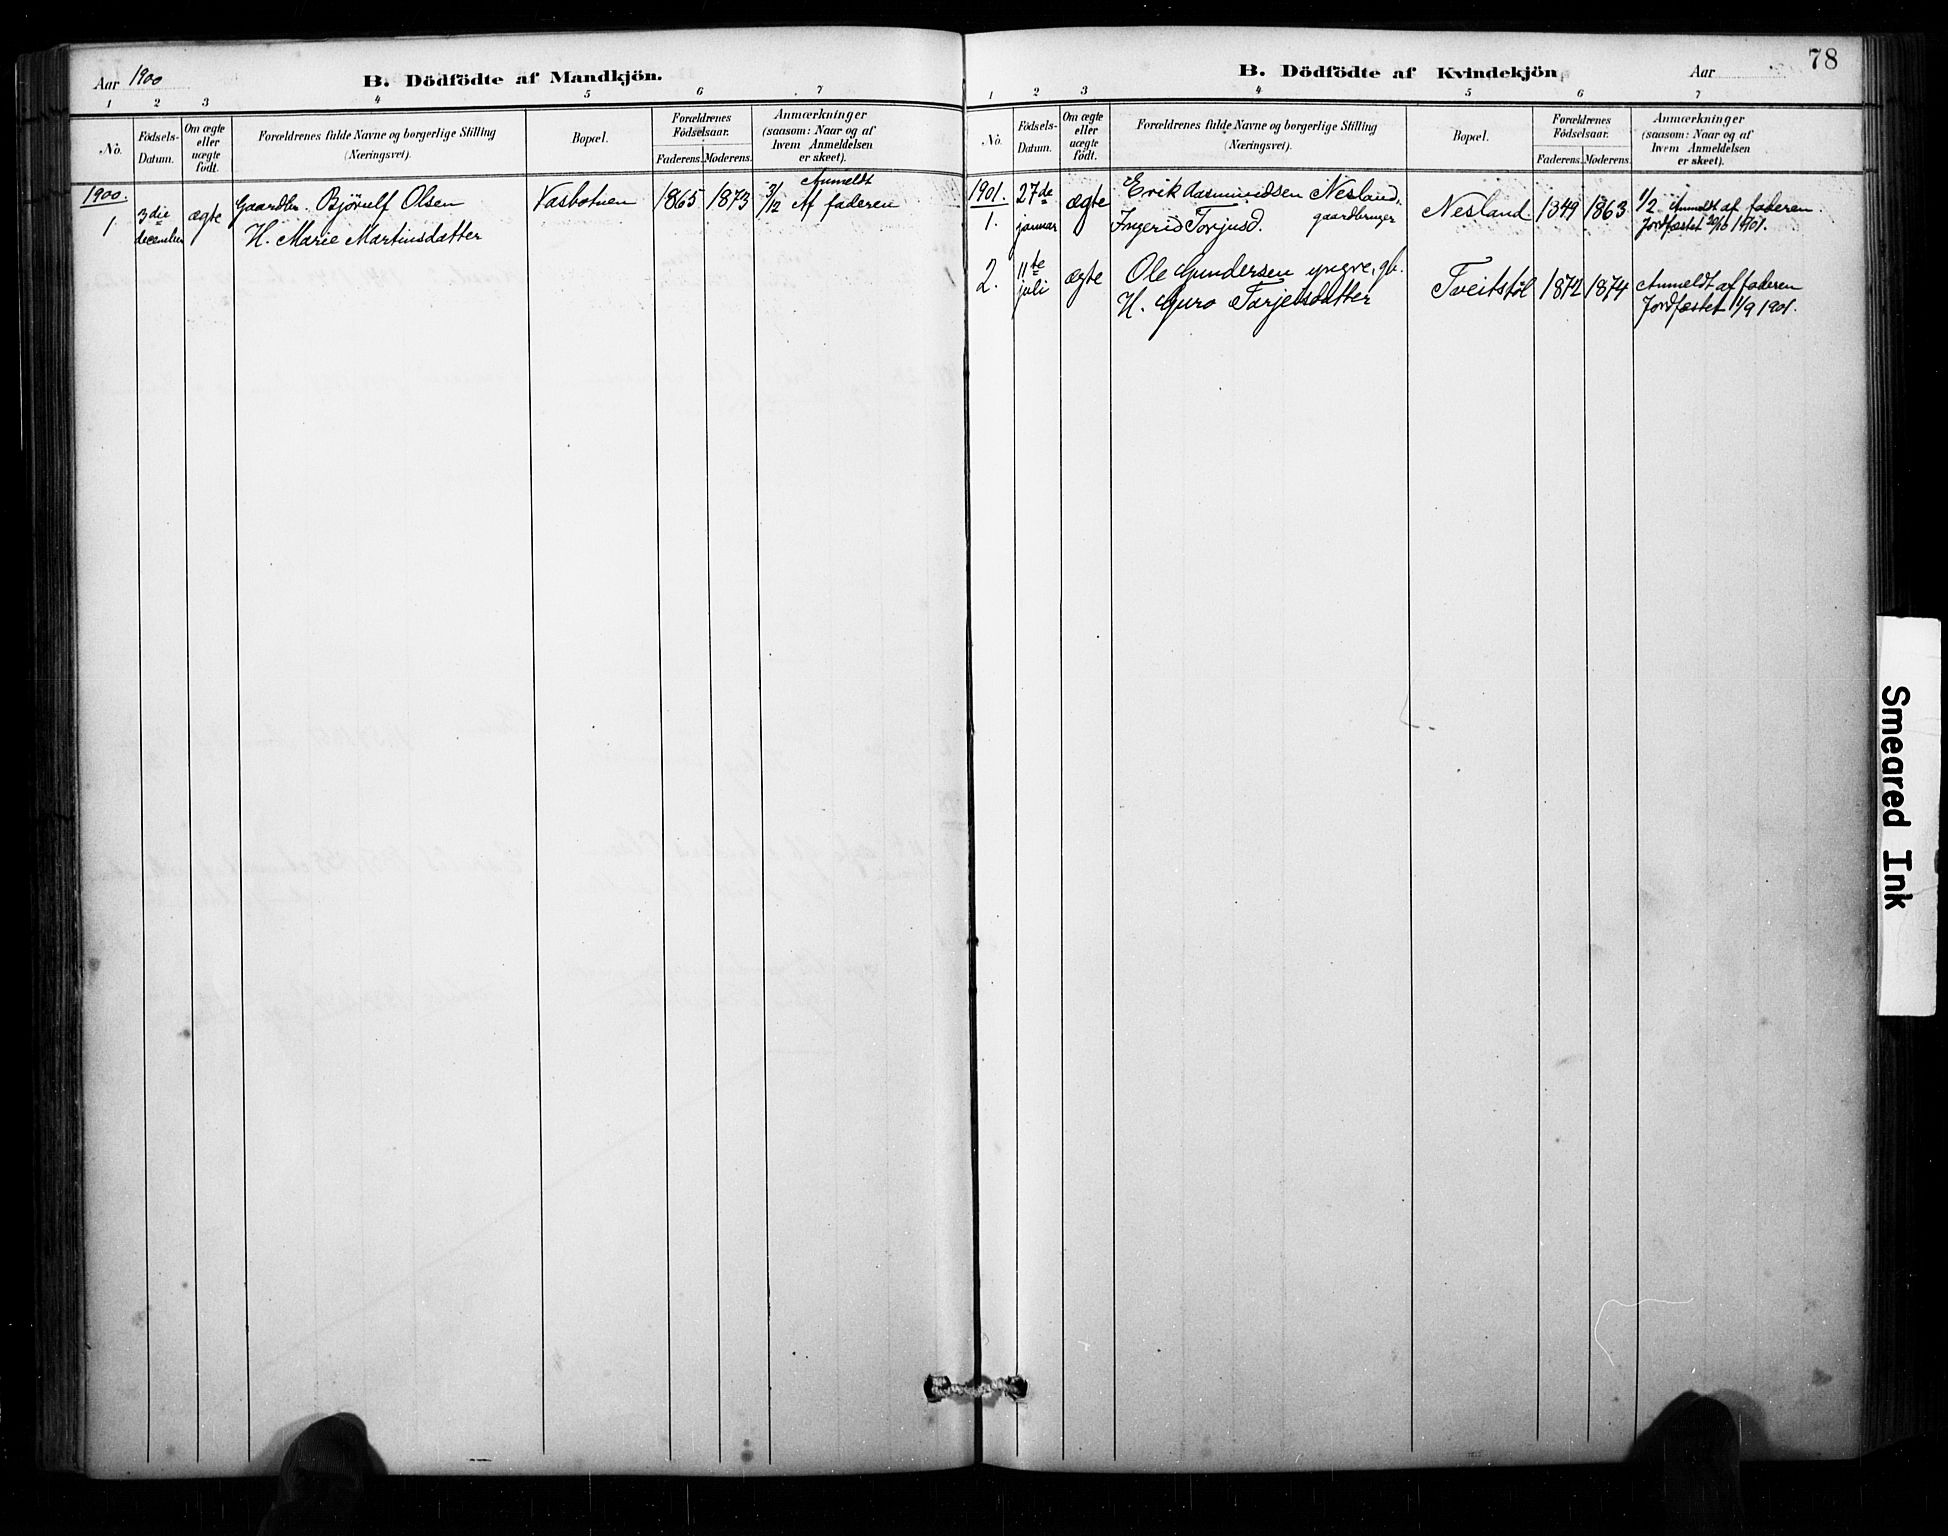 Aar 1900
B. Dödfödte af Mandkjön.
1 2 3 4 5 6 7
No.
Födsels-
Datum.
Om ægte
eller
uægte
födt.
Forældrenes fulde Navne og borgerlige Stilling
(Næringsvei).
Bopæl.
Forældrenes
Födselsaar.
Faderens. Moderens.
Anmærkninger
(saasom: Naar og af
hvem Anmeldelsen
er skeet).
1900.
1. 3die december ægte Gaardbr. Bjørulf Olsen Vasbotnen 1865 1873 3/12 Anmeldt af faderen
H. Marie Martinsdatter
B. Dödfödte af Kvindekjön
Aar
78
1 2 3 4 5 6 7
No.
Födsels-
Datum.
Om ægte
eller
uægte
födt.
Forældrenes fulde Navne og borgerlige Stilling
(Næringsvei).
Bopæl.
Forældrenes
Födselsaar.
Faderens. Moderens.
Anmærkninger
(saasom: Naar og af
hvem Anmeldelsen
er skeet).
1901.
1. 27de januar ægte Erik Aasmundsen Nesland, gaardbruger Nesland 1849 1863 1/2 Anmeldt af faderen.
Ingerid Torjusd. Jordfæstet 1901.
2. 11te juli ægte Ole Gundersen yngre, gb. Tveitstøl 1872 1874 Anmeldt af faderen
H. Guro Tarjeisdatter Jordfæstet 1/9 1901.
Smeared Ink